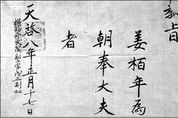 敎旨
姜栢年為
朝奉大夫
者
天啓八年正月十七日